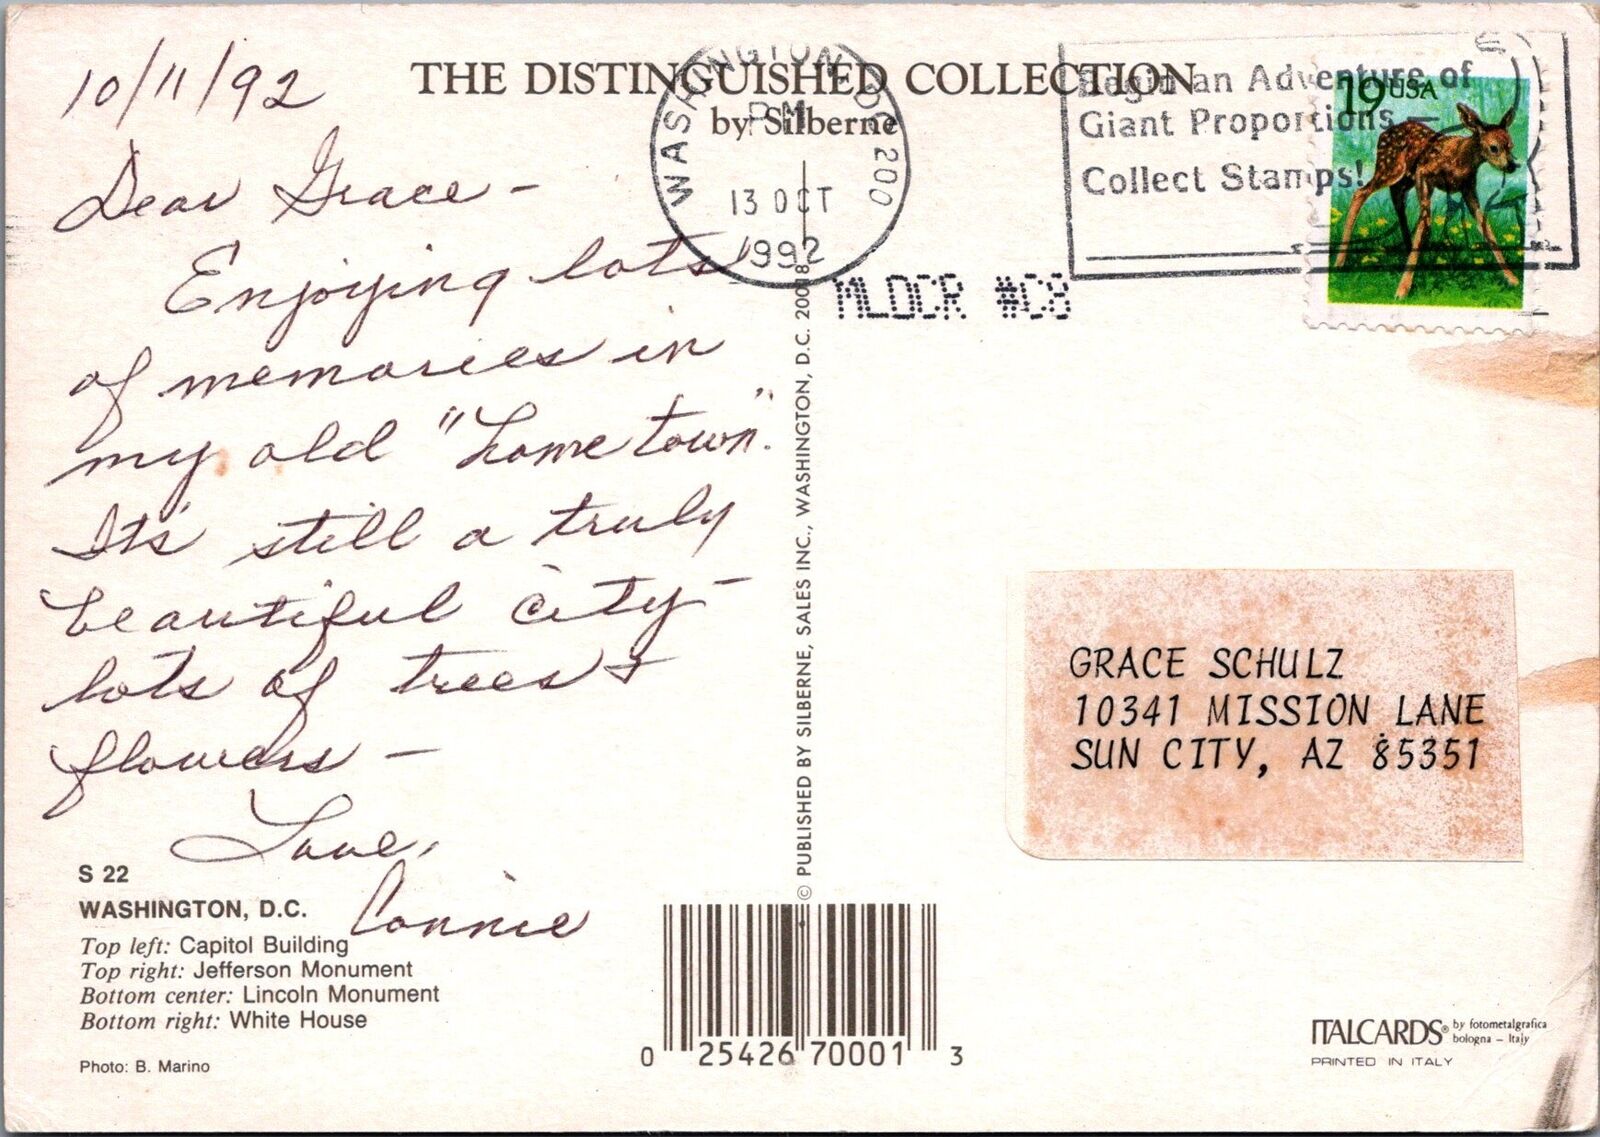 10/11/92
THE DISTINGUISHED COLLECTION
by Silberne
Dear Grace -
Enjoying lots
of memories in
my old "home town".
It's still a truly
beautiful city -
lots of trees +
flowers -
Love,
Connie
S 22
WASHINGTON, D.C.
Top left: Capitol Building
Top right: Jefferson Monument
Bottom center: Lincoln Monument
Bottom right: White House
Photo: B. Marino
WASHINGTON, DC 200
PM
13 OCT
1992
Begin an Adventure of
Giant Proportions —
Collect Stamps!
19 USA
MLOCR #C8
© PUBLISHED BY SILBERNE, SALES INC., WASHINGTON, D.C. 20018
GRACE SCHULZ
10341 MISSION LANE
SUN CITY, AZ 85351
0 25426 70001 3
ITALCARDS® by fotometalgrafica
bologna - Italy
PRINTED IN ITALY